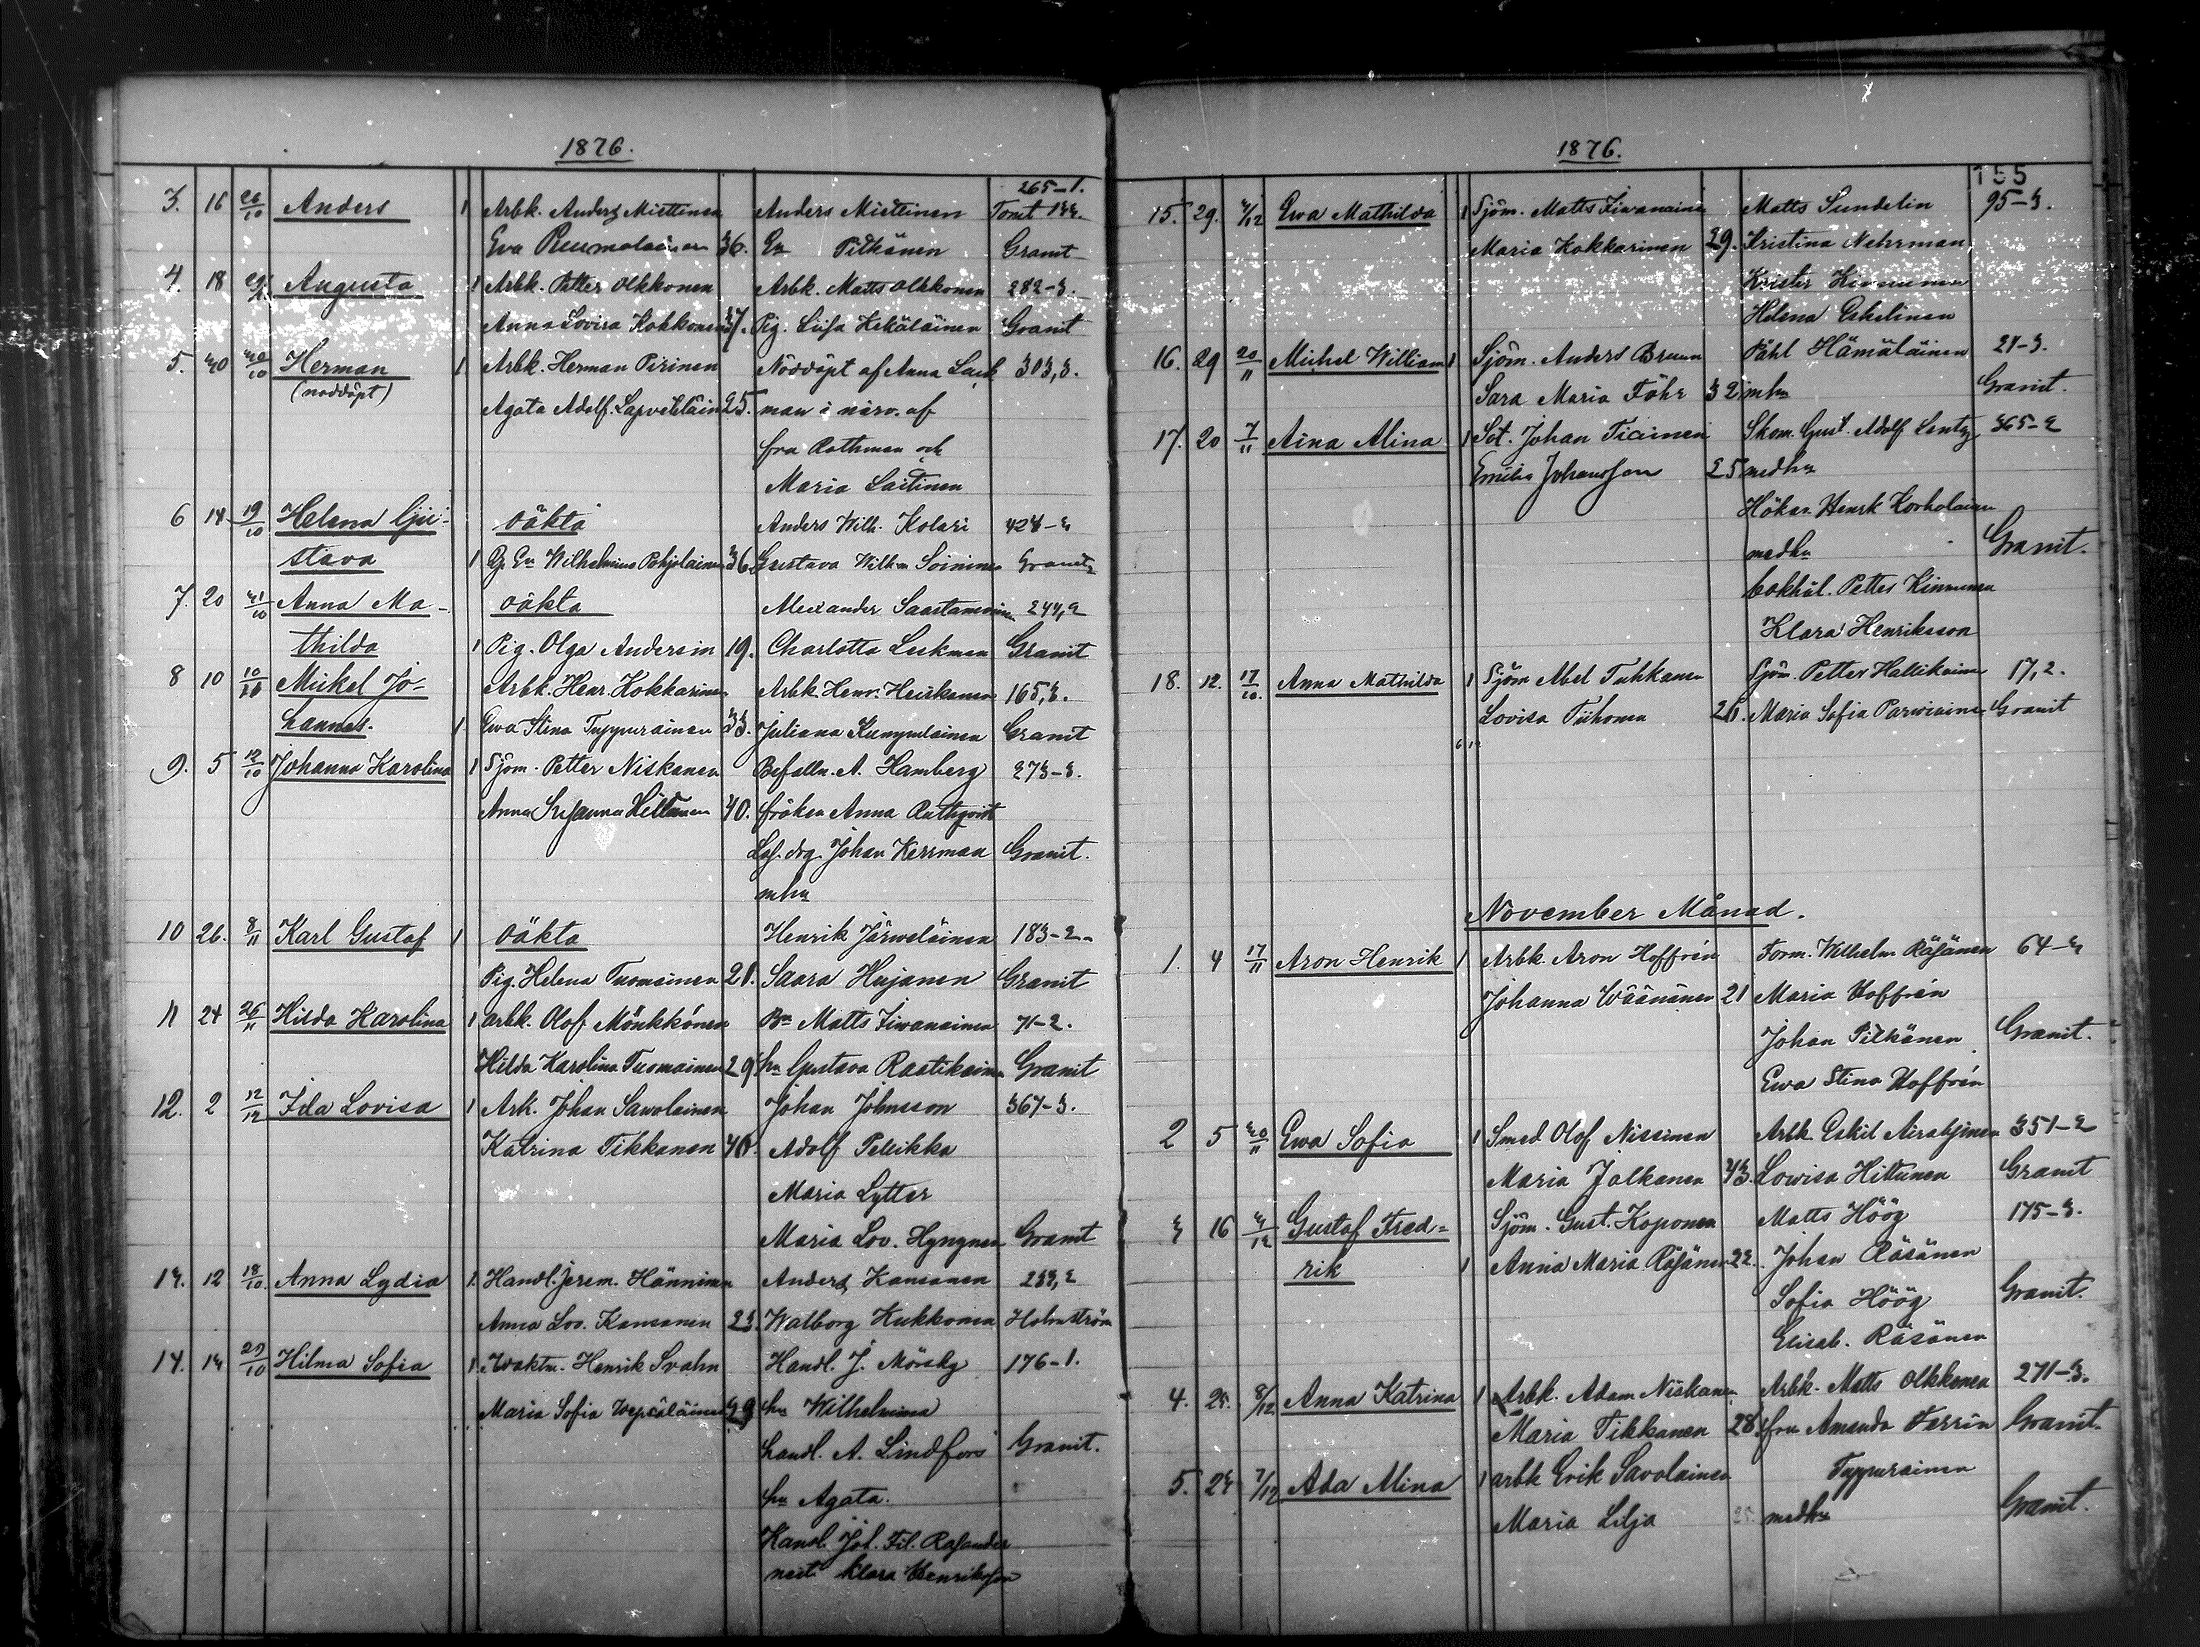 1876.
265-1.
3. 16 26/10 Anders 1 Arbk. Anders Miettinen Anders Miettinen
Eva 36. Eva Pitkänen Granit
4. 18 Augusta 1 Arbk. Petter Olkkonen Arbk. Matts Olkkonen 282-3.
Anna Lovisa Kokkonen 37. Pig. Liisa Kekäläinen Granit
5. 30 30/10 Herman 1 Arbk. Herman Pirinen Nöddöpt af Anna 303,3.
(nöddöpt)
Agata Adolf. 25. man i närv. af
fru Rothman och
Maria Laitinen
6 14 19/10 Helena Gu- oäkta Anders Wilh. Kolari
stava 1 Pohjolainen 36 Gustava Wilh:a Soininen Granit
7. 20 31/10 Anna Ma- oäkta Alexander Saastamoinen 244,2
thilda 1 Pig. Olga Andersin 19. Charlotta Leskman Granit
8 10 Mickel Jo- Arbk. Henr. Kokkarinen Arbk. Henr. Heiskanen 165,3.
hannes. 1. Ewa Stina Tuppurainen 33. Juliana Kumpulainen Granit
9. 5 12/10 Johanna Karolina 1 Sjöm. Petter Niskanen Befalln. A. Hamberg 273-3.
Anna Susanna Hiltunen 40. fröken Anna
Johan Kerrman Granit.
mhu
10 26. 8/11 Karl Gustaf 1 oäkta Henrik Järweläinen 183-2.
Pig. Helena Tuomainen 21. Saara Hujanen Granit
11 24 26/11 Hilda Karolina 1 arbk. Olof Mönkkönen Bn Matts Iiwanainen 71-2.
Hilda Karolina Tuomainen 29 hu Gustava Raatikainen Granit
12. 2 12/12 Ida Lovisa 1 Ark. Johan Sawolainen Johan Johnsson 367-3.
Katrina Tikkanen 40. Adolf Pelikka
Maria Lytter
Maria Lov. Hyngynen Granit
13. 12 18/10. Anna Lydia 1. Handl. Jerem. Hänninen Anders Kansanen
Anna Lov. Kansanen 23 Walborg Kukkonen Holmström
14. 13 29/10 Hilma Sofia 1 Henrik Svahn Handl. J. Mörsky 176-1.
Maria Sofia Wepsäläinen 23 hu Wilhelmina
handl. A. Lindfors Granit.
hu Agata.
Handl. Joh. Fil. Rosander
Klara Henriksson
1876.
155
15. 29. 3/12 Ewa Mathilda 1 Sjöm. Matts Iiwanainen Matts Sundelin 95-3.
Maria Kokkarinen 29. Kristina Nehrman
Krister Kinnunen
Helena Eskelinen
16. 29 20/11 Michel William 1 Sjöm. Anders Bruun Påhl Hämäläinen 21-3.
Sara Maria Föhr 32 mhu Granit.
17. 20 7/11 Aina Alina 1 Johan Skom. Gust. Adolf Lentz 365-2
Emilia Johansson 25 medhu
Höker Henrik Korholainen
medhu Granit.
bokhål. Petter Kinnunen
Klara Henriksson
18. 12. 17/10. Anna Mathilda 1 Sjöm Abel Tuhkanen Sjöm. Petter Hallikainen 17,2.
Lovisa Tiihonen 26. Maria Sofia Parwiainen Granit
November Månad.
1. 4 17/11 Aron Henrik 1 Arbk. Aron Hoffrén Torm. Wilhelm Räsänen 64-3
Johanna Wäänänen 21 Maria Hoffrén
Johan Pitkänen Granit.
Ewa Stina Hoffrén
2 5 30/11 Ewa Sofia 1 Smed Olof Nissinen Arbk. Eskil Airaksinen 351-2
Maria Jalkanen 43. Lowisa Hiltunen Granit
3 16 3/12 Gustaf Fred= Sjöm. Gust. Koponen Matts Höög 175-3.
rik 1 Anna Maria Räsänen 22. Johan Räsänen
Sofia Höög Granit.
Elisab. Räsänen
4. 25. 8/12 Anna Katrina 1 Arbk. Adam Niskanen Arbk. Matts Olkkonen 271-3.
Maria Tikkanen 28. fru Amanda Ferrin Granit.
5. 23 7/12 Ada Alina 1 arbk Erik Savolainen Tuppurainen
Maria Lilja 25. medhu Granit.